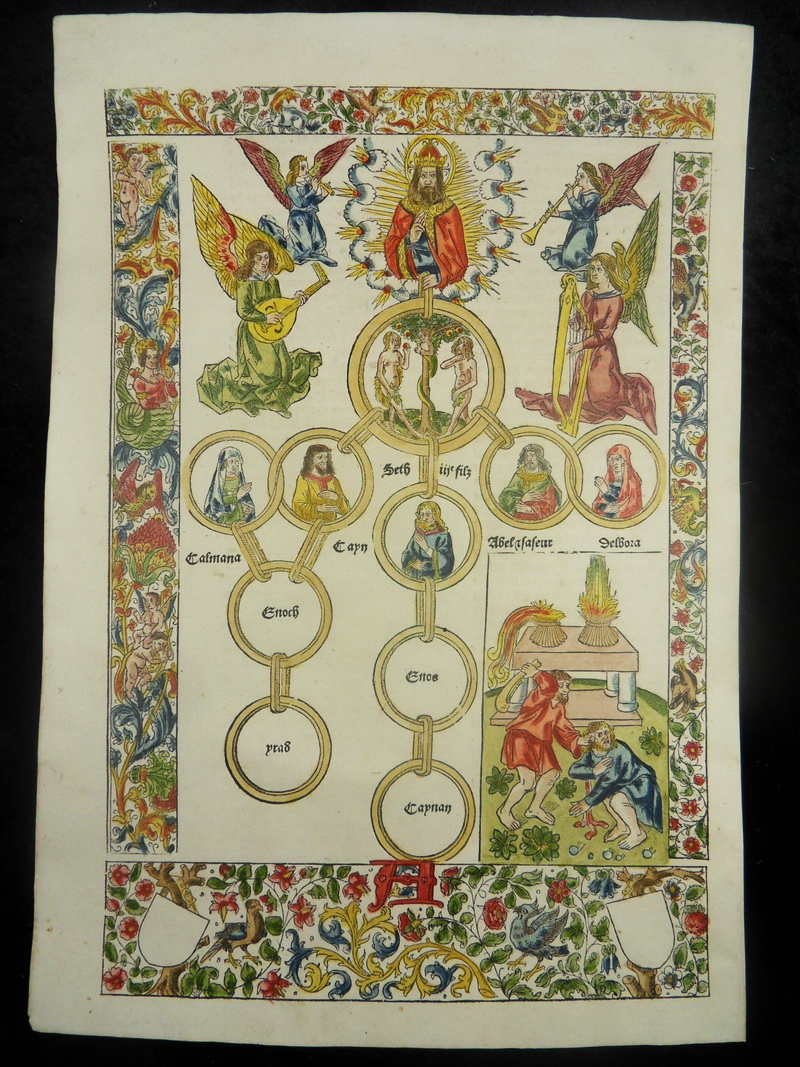 Seth iije filz
Calmana
Cayn
Abel q̃ saseur
Delbora
Enoch
Enos
yrad
Caynan
A